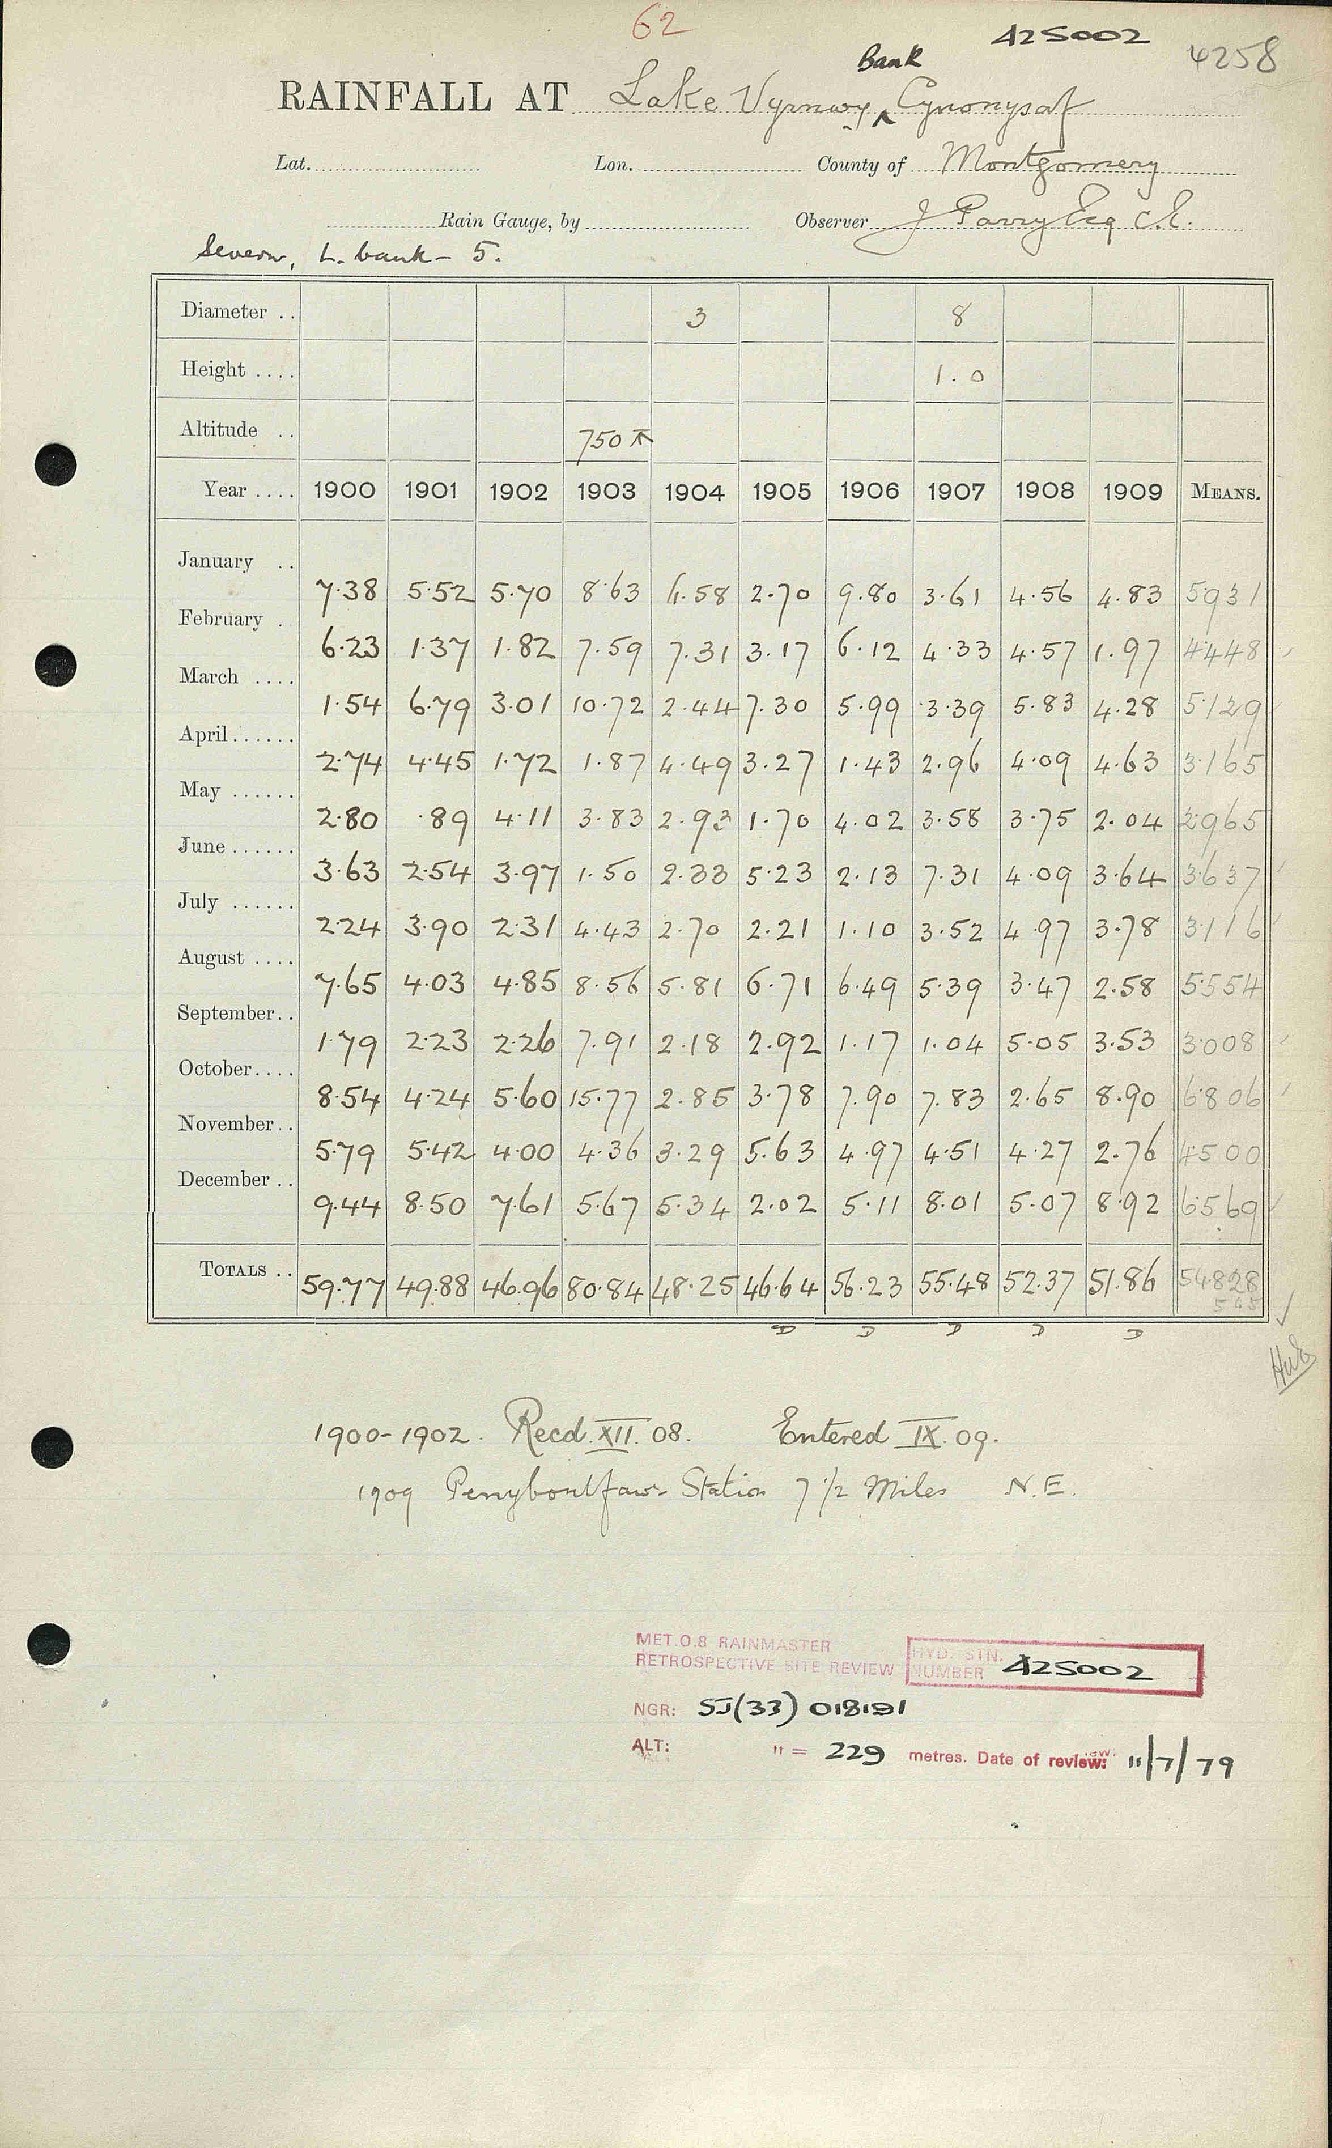 62
425002
4258
Bank
RAINFALL AT Lake Vyrnwy ^ Cynonysaf
Lat. Lon. County of Montgomery
Rain Gauge, by Observer J Parry Esq C.E.
Severn, L. bank - 5.
Diameter .. 3 8
Height .... 1.0
Altitude .. 750
Year .... 1900 1901 1902 1903 1904 1905 1906 1907 1908 1909 MEANS.
January .. 7.38 5.52 5.70 8.63 6.58 2.70 9.80 3.61 4.56 4.83 5931
February . 6.23 1.37 1.82 7.59 7.31 3.17 6.12 4.33 4.57 1.97 4448
March .... 1.54 6.79 3.01 10.72 2.44 7.30 5.99 3.39 5.83 4.28 5129
April...... 2.74 4.45 1.72 1.87 4.49 3.27 1.43 2.96 4.09 4.63 3165
May ...... 2.80 .89 4.11 3.83 2.93 1.70 4.02 3.58 3.75 2.04 2965
June ...... 3.63 2.54 3.97 1.50 2.33 5.23 2.13 7.31 4.09 3.64 3637
July ...... 2.24 3.90 2.31 4.43 2.70 2.21 1.10 3.52 4.97 3.78 3116
August .... 7.65 4.03 4.85 8.56 5.81 6.71 6.49 5.39 3.47 2.58 5554
September.. 1.79 2.23 2.26 7.91 2.18 2.92 1.17 1.04 5.05 3.53 3008
October.... 8.54 4.24 5.60 15.77 2.85 3.78 7.90 7.83 2.65 8.90 6806
November.. 5.79 5.42 4.00 4.36 3.29 5.63 4.97 4.51 4.27 2.76 4500
December .. 9.44 8.50 7.61 5.67 5.34 2.02 5.11 8.01 5.07 8.92 6569
TOTALS .. 59.77 49.88 46.96 80.84 48.25 46.64 56.23 55.48 52.37 51.86 54828
545
D D D D D
1900-1902. Recd. XII. 08. Entered IX. 09.
1909 Penybontfawr Station 7 1/2 Miles N.E.
MET.O.8 RAINMASTER
RETROSPECTIVE SITE REVIEW
HYD. STN.
NUMBER 425002
NGR: SJ(33) 018191
ALT: " = 229 metres. Date of review: 11/7/79